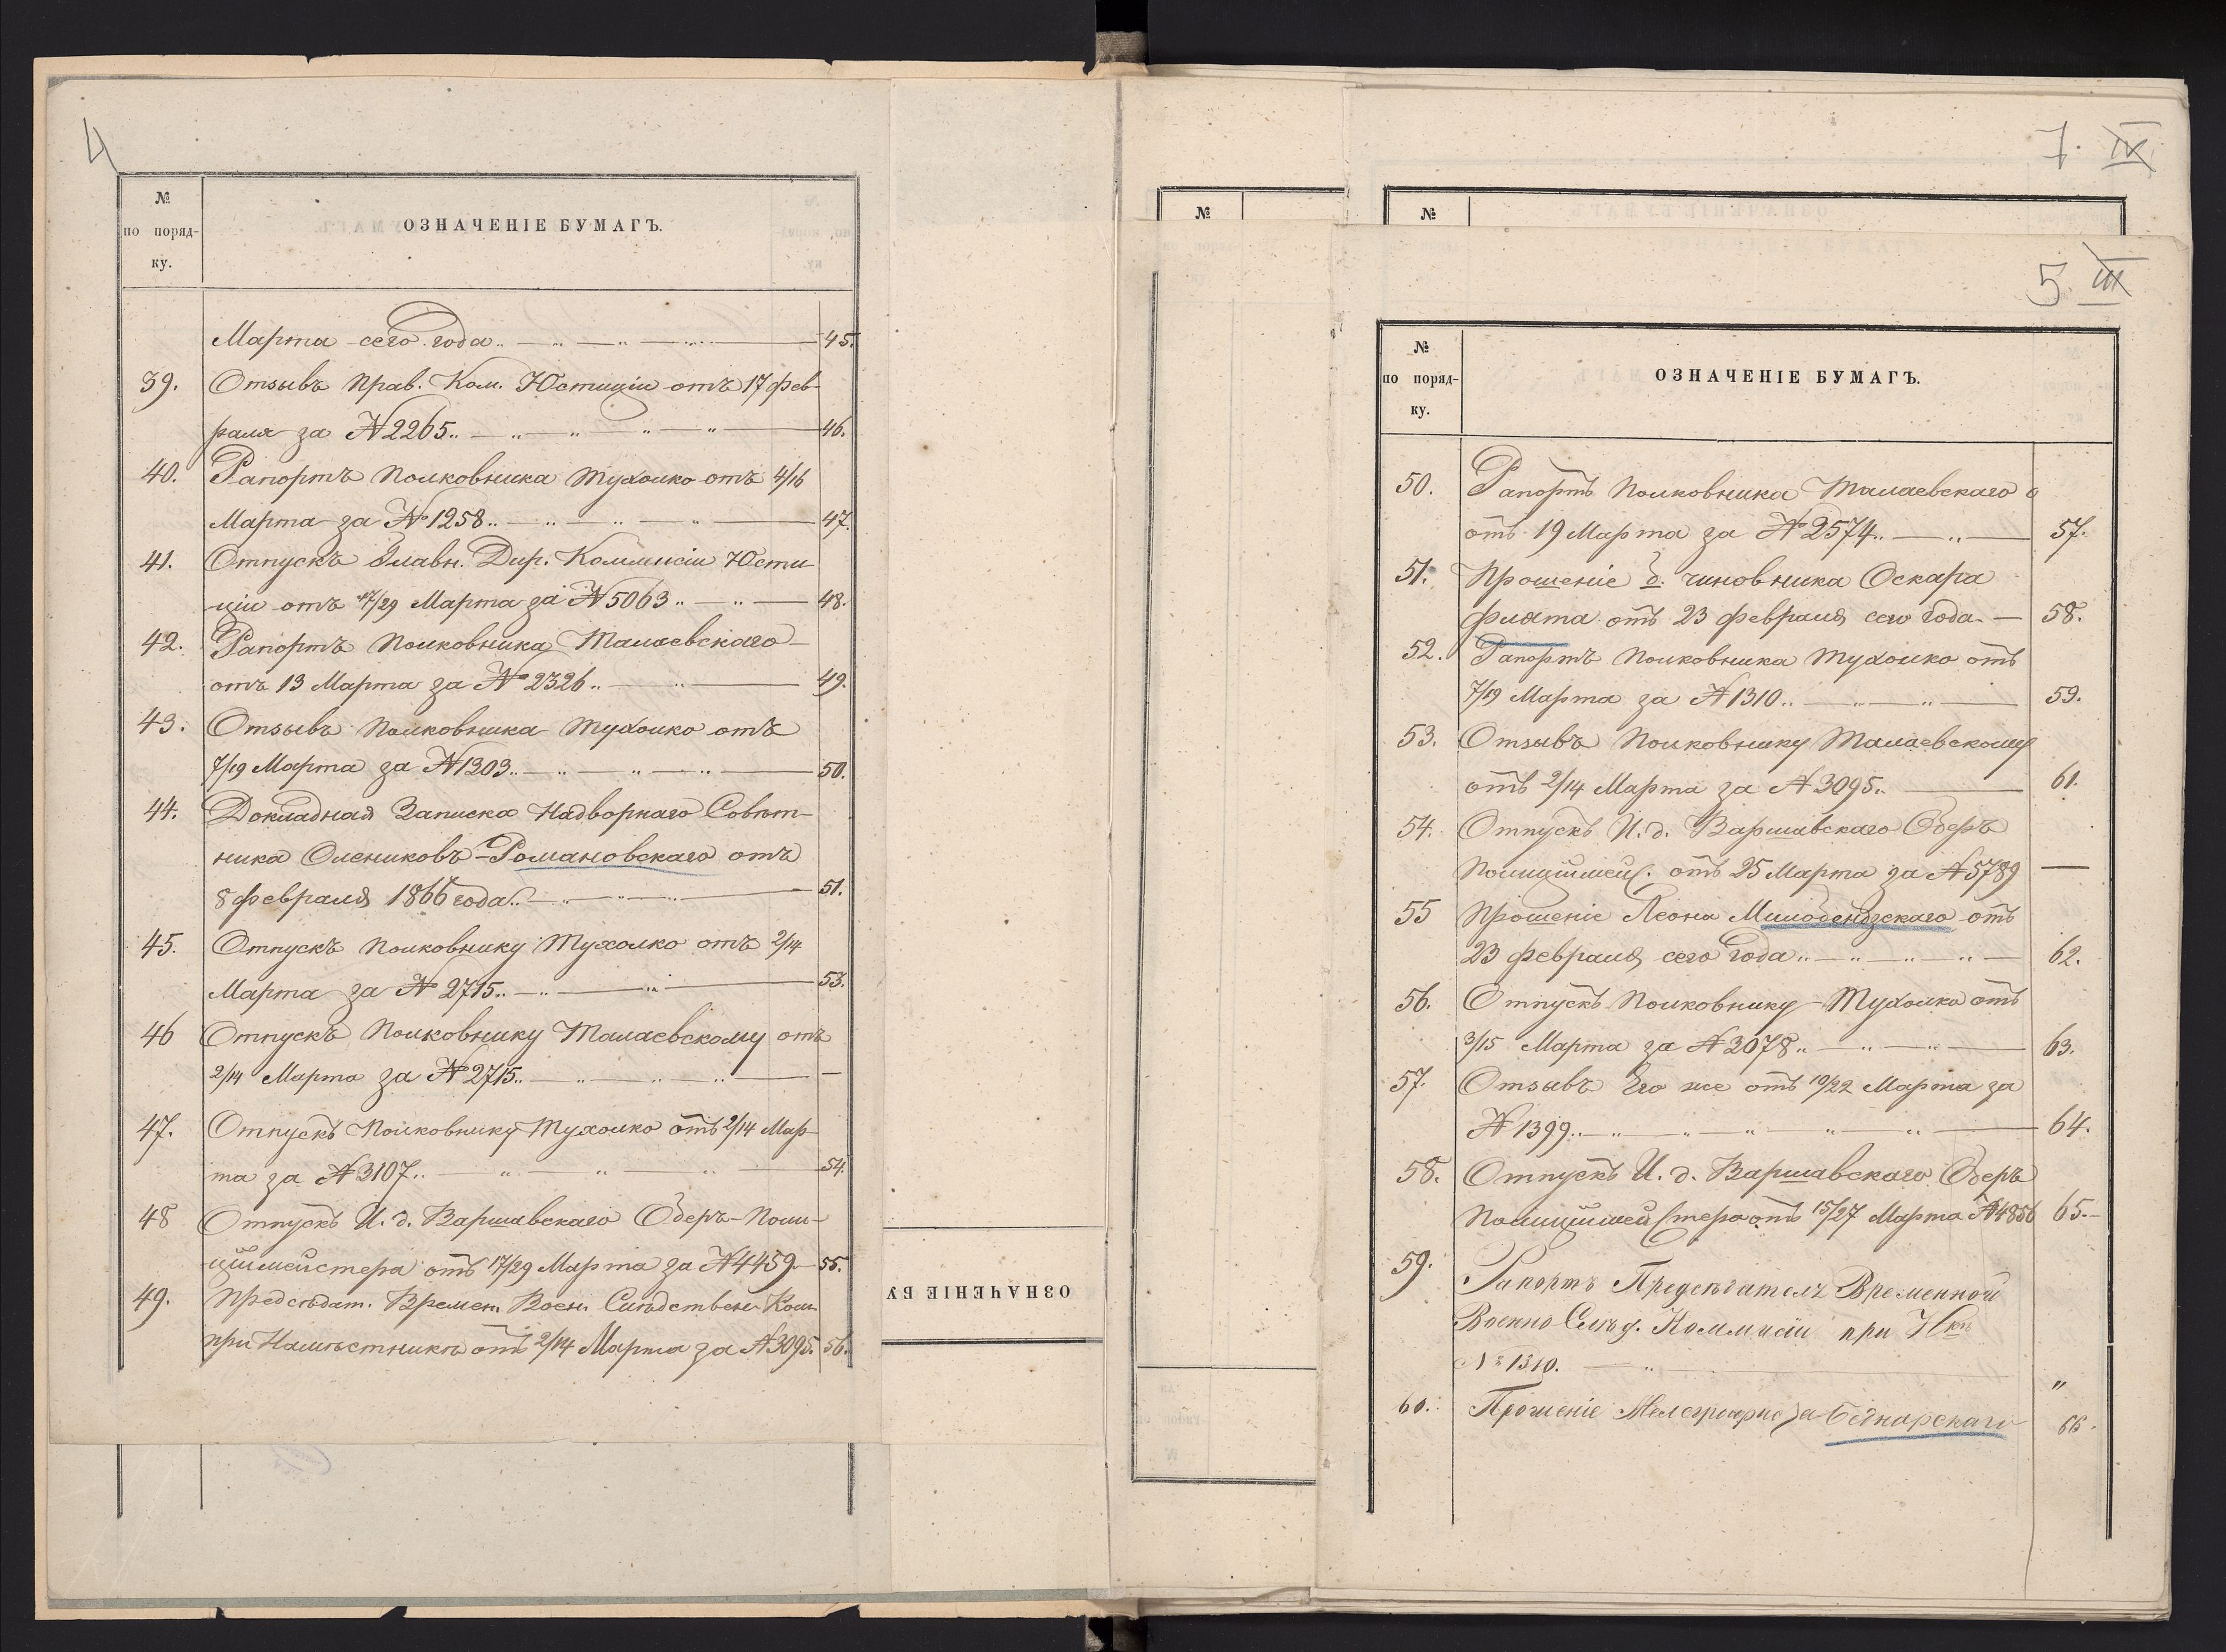 4
№
по поряд-
ку.
ОЗНАЧЕНІЕ БУМАГЪ.
Марта сего года 45.
39. Отзывъ Прав. Ком. Юстиціи отъ 17 фев-
раля за № 2265 46.
40. Рапортъ Полковника Тухолко отъ 4/16
Марта за № 1258 47.
41. Отпускъ Главн. Дир. Коммисіи Юсти
ціи отъ 17/29 Марта за № 5063 48.
42. Рапортъ Полковника Малаевскаго
отъ 13 Марта за № 2326 49.
43. Отзывъ Полковника Тухолко отъ
7/19 Марта за № 1303 50.
44. Докладная Записка Надворнаго Совѣт-
ника Олениковъ-Романовскаго отъ
8 февраля 1866 года 51.
45. Отпускъ Полковнику Тухолко отъ 2/14
Марта за № 2715 53.
46 Отпускъ Полковнику Малаевскому отъ
2/14 Марта за № 2715 —
47. Отпускъ Полковнику Тухолко отъ 2/14 Мар-
та за № 3107 54.
48 Отпускъ И. д. Варшавскаго Оберъ-Поли-
цiймейстера отъ 17/29 Марта за № 4459 55.
49. Предсѣдат. Времен. Воен. Слѣдствен. Ком.
при Намѣстникѣ отъ 2/14 Марта за № 3095. 56.
ОЗНАЧЕНІЕ БУ
№
7. IV
№
5. III
№
по поряд-
ку.
ОЗНАЧЕНІЕ БУМАГЪ.
50. Рапортъ Полковника Малаевскаго
отъ 19 Марта за № 2574 57.
51. Прошеніе б. чиновника Оскара
Флята отъ 23 февраля сего года. — 58.
52. Рапортъ Полковника Тухолко отъ
7/19 Марта за № 1310 59.
53. Отзывъ Полковнику Малаевскому
отъ 2/14 Марта за № 3095 61.
54. Отпускъ И. д. Варшавскаго Оберъ
Полицiймейс. отъ 25 Марта за № 5789 —
55 Прошеніе Леона Милобендзскаго отъ
23 февраля сего года 62.
56. Отпускъ Полковнику Тухолко отъ
3/15 Марта за № 3078 63.
57. Отзывъ Его же отъ 10/22 Марта за
№ 1399 64.
58. Отпускъ И. д. Варшавскаго Оберъ
Полицiймейстера отъ 15/27 Марта № 4856 65.
59. Рапортъ Предсѣдателя Временной
Военно Слѣд. Коммисіи при Нкѣ
№ 1310. "
60. Прошеніе Беднарскаго 66.